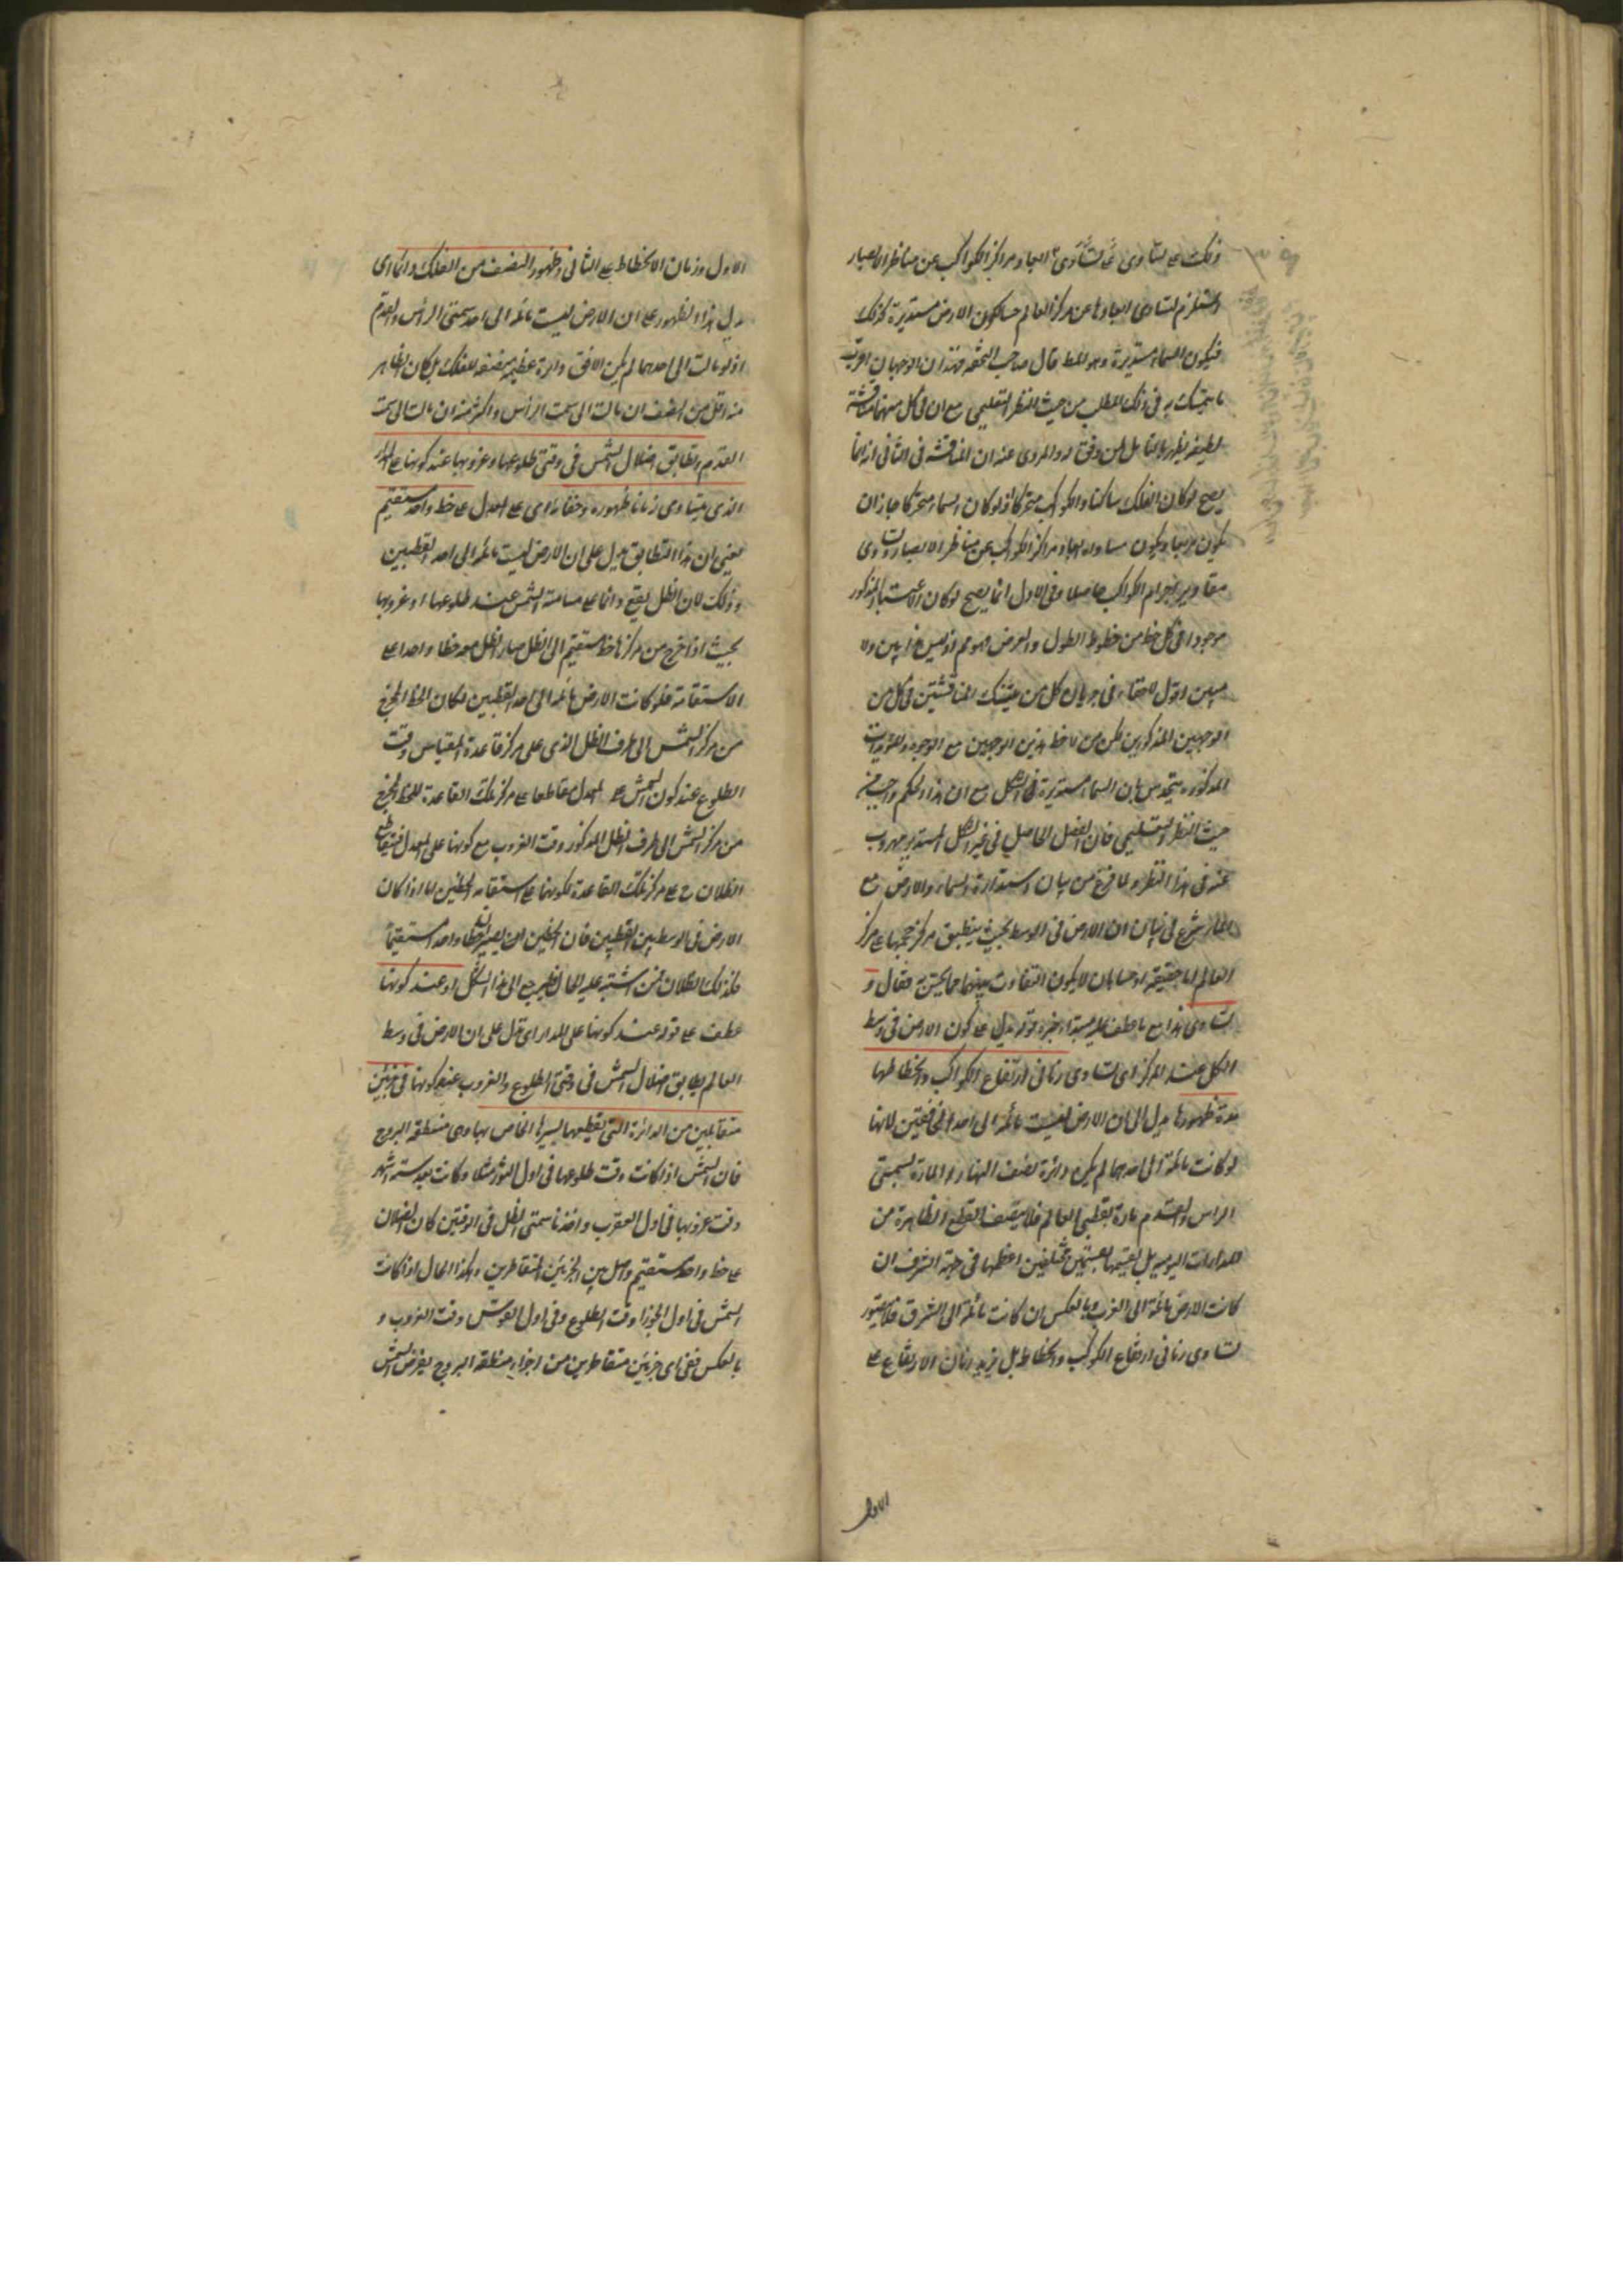 ذلك على تساوى ابعاد مراكز الكواكب عن مناظر الابصار
المستلزم لتساوى ابعادها عن مركز العالم حسا لكون الارض مستديرة كذلك
فيكون السماء مستديرة وهو المط قال صاحب التحفة فهذان الوجهان اقرب
ما يتمسك به فى ذلك المطلب من حيث النظر التعليمى مع ان فى كل منهما مناقشة
لطيفة يظهر بالتامل لمن وفق له والمروى عنه ان المناقشة فى الثانى انه انما
يصح لو كان الفلك ساكنا والكواكب متحركا اذ لو كان السماء متحركا جاز ان
يكون مربعا ويكون مساواة ابعاد مراكز الكواكب عن مناظر الابصار وتساوى
مقادير اجرام الكواكب حاصلا وفى الاول انما يصح لو كان الاعتبار المذكور
موجودا فى كل خط من خطوط الطول والعرض وهو مم اذ ليس هذا بين ولا
مبين اقول لا خفاء فى جريان كل من تينك المناقشتين فى كل من
الوجهين المذكورين لكن من لاحظ هذين الوجهين مع الوجوه والمؤيدات
المذكورة يتحدس بان السماء مستديرة فى الشكل مع ان هذا الحكم واجب من
حيث النظر التعليمى فان الفصل الحاصل فى غير الشكل المستدير مهروب
عنه فى هذا النظر ولما فرغ من بيان استدارة السماء والارض مع
الماء شرع فى بيان ان الارض فى الوسط بحيث ينطبق مركز حجمها على مركز
العالم اما حقيقة او حسا بان لا يكون التفاوت بينهما مما يحس به فقال و
تساوى هذا مع ما عطف عليه مبتداء خبره قوله يدل على كون الارض فى وسط
الكل عند المركز اى تساوى زمانى ارتفاع الكواكب وانحطاطها
مدة ظهورها يدل على ان الارض ليست مائلة الى احد الخافقين لانها
لو كانت مائلة الى احدهما لم يكن دائرة نصف النهار المارة بسمتى
الراس والقدم مارة بقطبى العالم فلا ينتصف القطع الظاهرة من
المدارات اليومية بل يقسمها بقسمين مختلفين اعظمها فى جهة الشرق ان
كانت الارض مائلة الى الغرب وبالعكس ان كانت مائلة الى الشرق فلا يتصور
تساوى زمانى ارتفاع الكوكب وانحطاطه بل يزيد زمان الارتفاع على
الاول
الاول وزمان الانحطاط على الثانى وظهور النصف من الفلك دائما اى
يدل هذا الظهور على ان الارض ليست مائلة الى احد سمتى الرأس والقدم
اذ لو مالت الى احدهما لم يكن الافق دائرة عظيمة منصفة للفلك بل كان الظاهر
منه اقل من النصف ان مالت الى سمت الرأس واكثر منه ان مالت الى سمت
القدم وتطابق اظلال الشمس فى وقتى طلوعها وغروبها عند كونها على المدار
الذى يتساوى زمانا ظهوره وخفائه اى على المعدل على خط واحد مستقيم
يعنى ان هذا التطابق يدل على ان الارض ليست مائلة الى احد القطبين
وذلك لان الظل يقع دائما على مسامتة الشمس عند طلوعها او غروبها
بحيث اذا خرج من مركزها خط مستقيم الى الظل صار الظل معه خطا واحدا على
الاستقامة فلو كانت الارض مائلة الى احد القطبين لكان الخط المخرج
من مركز الشمس الى طرف الظل الذى على مركز قاعدة المقياس وقت
الطلوع عند كون الشمس على المعدل مقاطعا على مركز تلك القاعدة للخط المخرج
من مركز الشمس الى طرف الظل المذكور وقت الغروب مع كونها على المعدل فيتقاطع
الظلان ح على مركز تلك القاعدة لكونهما على استقامة الخطين اما اذا كان
الارض فى الوسط بين القطبين فان الخطين يصيران خطا واحدا مستقيما
فكذلك الظلان فمن اشتبه عليه الحال فليرجع الى هذا الشكل او عند كونها
عطف على قوله عند كونها على المدار اى تدل على ان الارض فى وسط
العالم تطابق اظلال الشمس فى وقتى الطلوع والغروب عند كونها فى جزئين
متقابلين من الدائرة التى يقطعها بسيرها الخاص بها وهى منطقة البروج
فان الشمس اذا كانت وقت طلوعها فى اول الثور مثلا وكانت بعد ستة اشهر
وقت غروبها فى اول العقرب واخذنا سمتى الظل فى الوقتين كان الظلان
على خط واحد مستقيم واصل بين الجزئين المتقاطرين وهكذا الحال اذا كانت
الشمس فى اول الجوزا وقت الطلوع وفى اول القوس وقت الغروب و
بالعكس ففى اى جزئين متقاطرين من اجزاء منطقة البروج يفرض الشمس